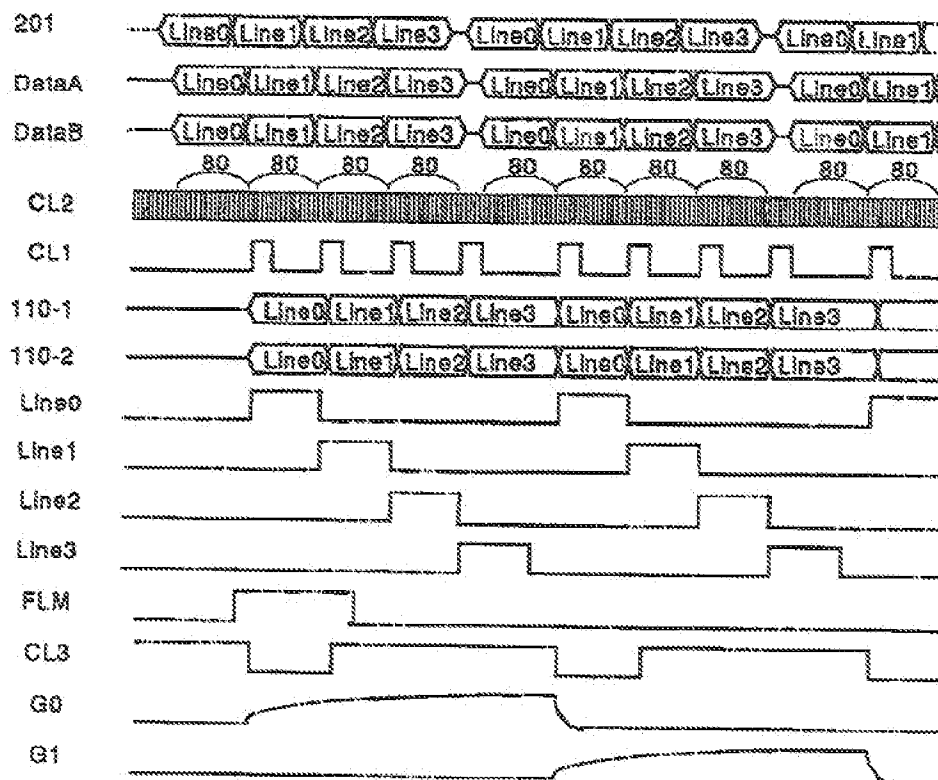 201 Line0 Line1 Line2 Line3 Line0 Line1 Line2 Line3 Line0 Line1
DataA Line0 Line1 Line2 Line3 Line0 Line1 Line2 Line3 Line0 Line1
DataB Line0 Line1 Line2 Line3 Line0 Line1 Line2 Line3 Line0 Line1
80 80 80 80 80 80 80 80 80 80
CL2
CL1
110-1 Line0 Line1 Line2 Line3 Line0 Line1 Line2 Line3
110-2 Line0 Line1 Line2 Line3 Line0 Line1 Line2 Line3
Line0
Line1
Line2
Line3
FLM
CL3
G0
G1